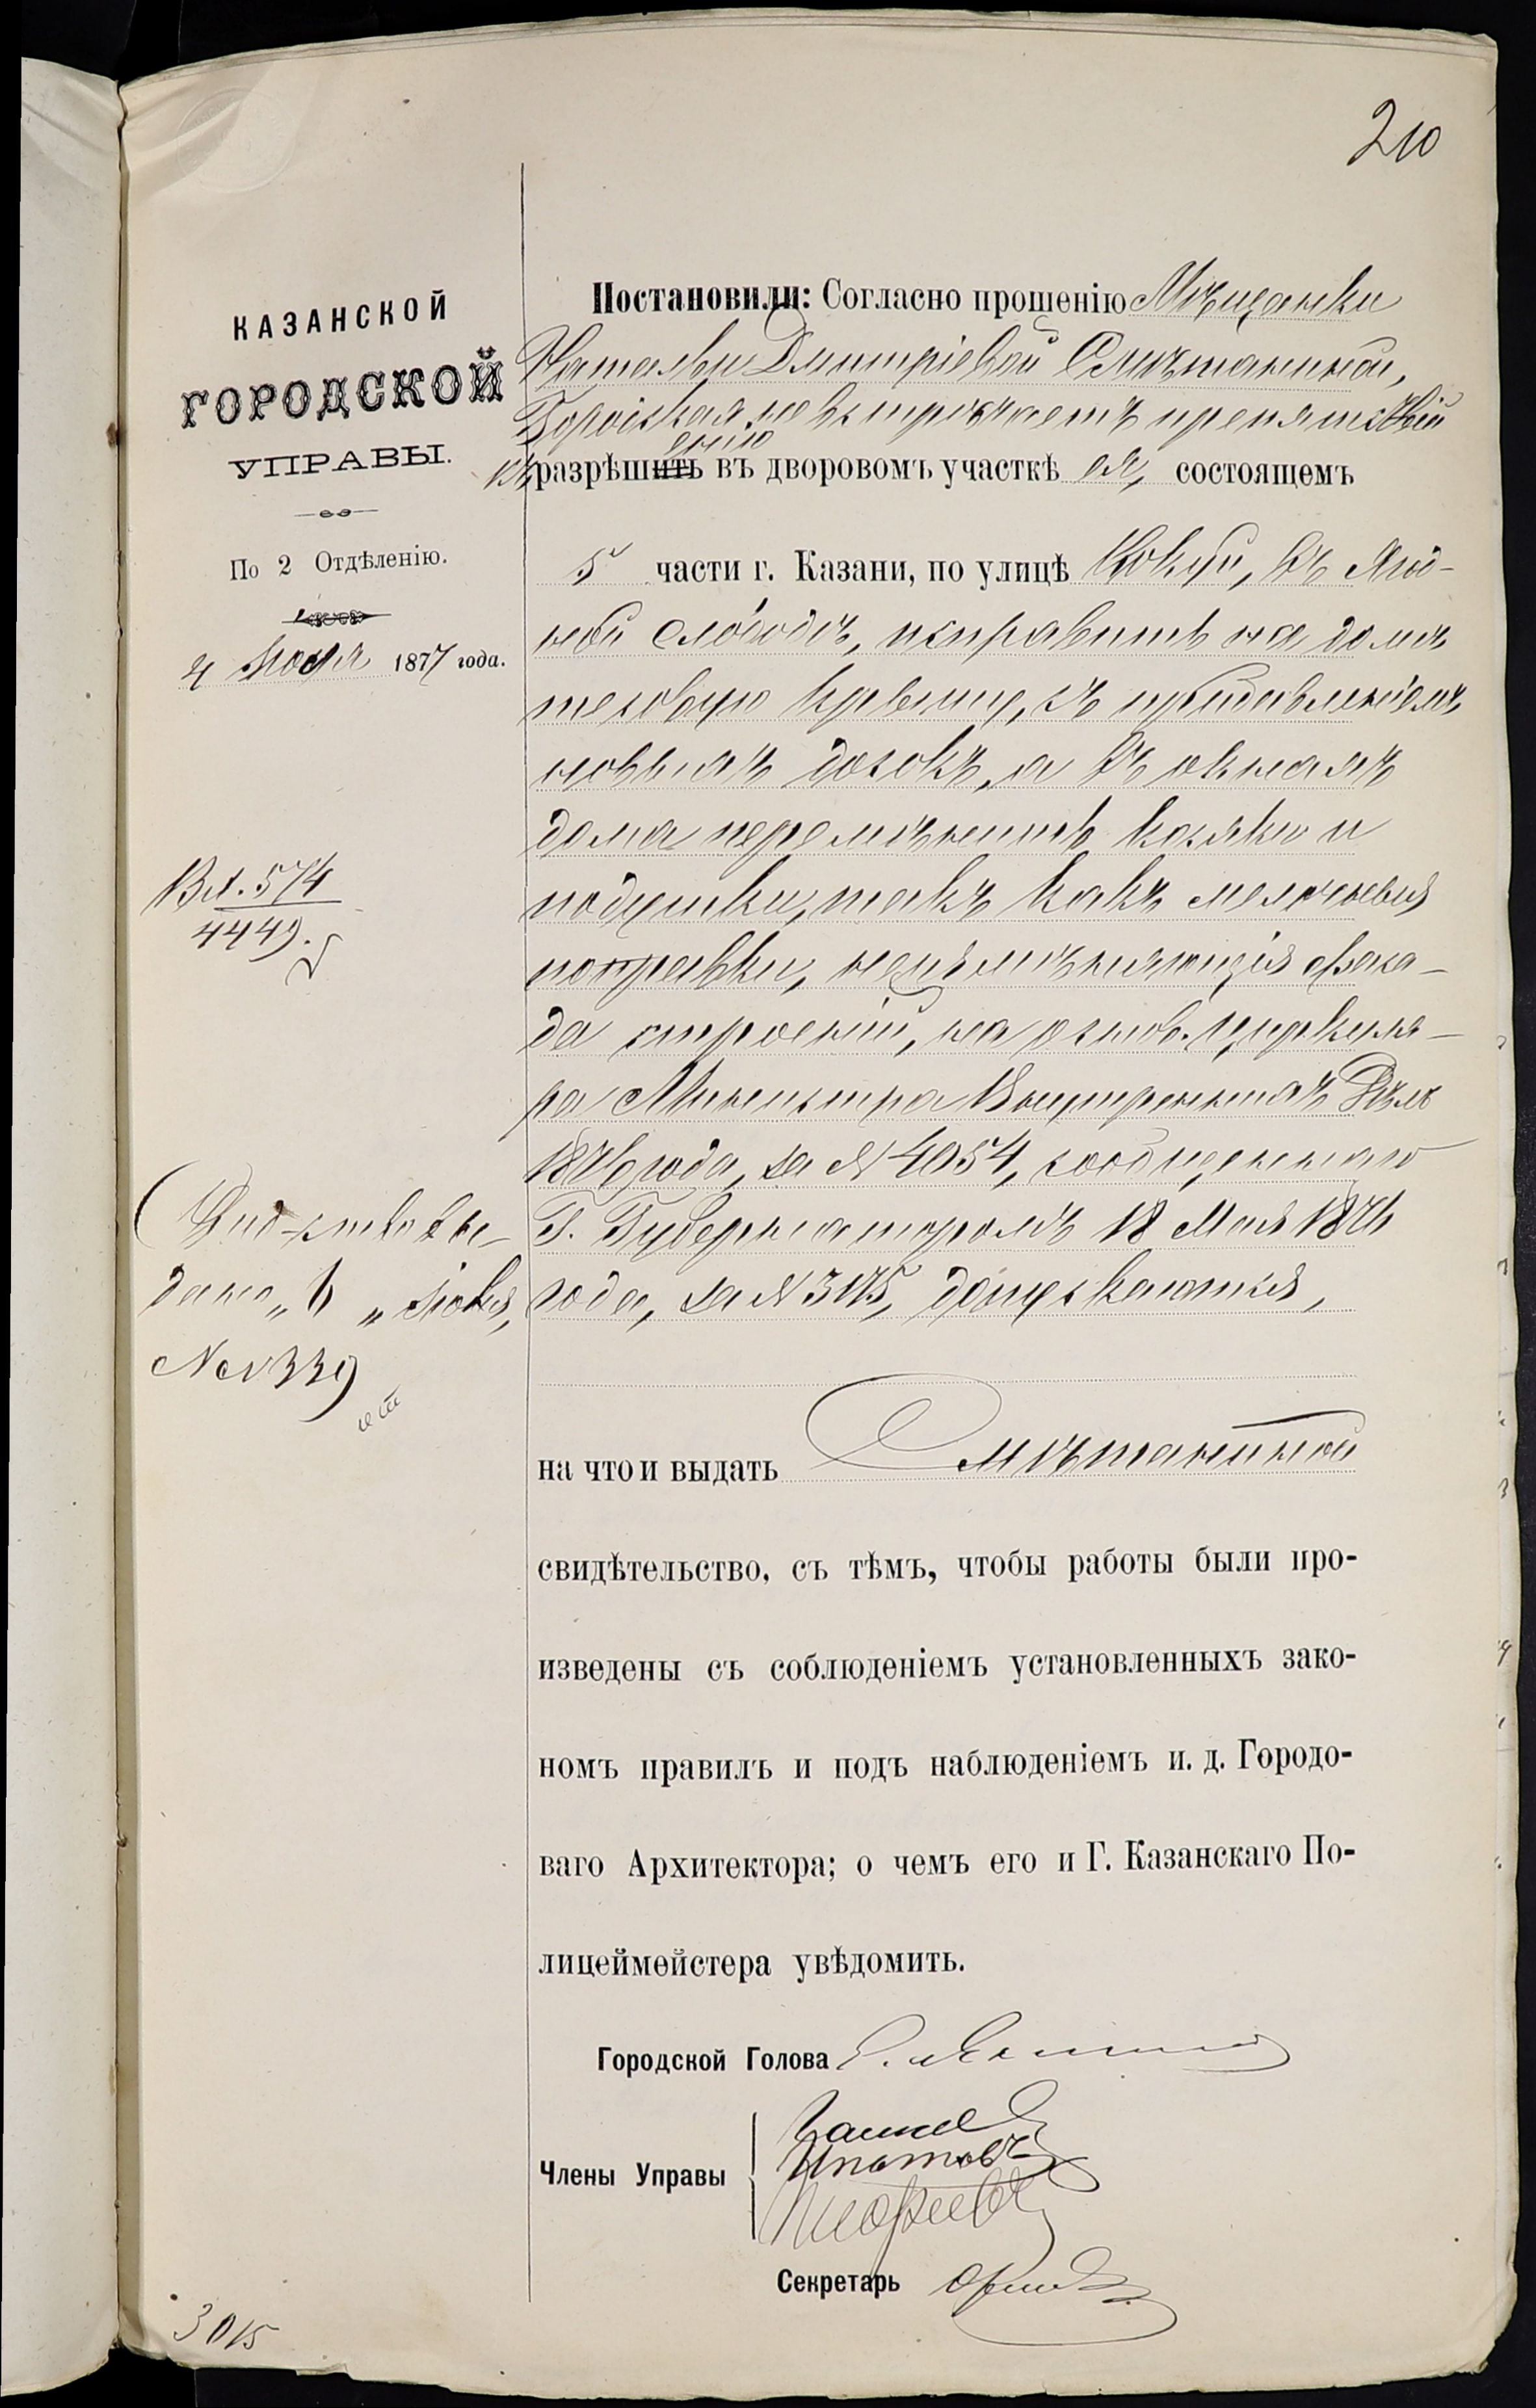 210
КАЗАНСКОЙ
ГОРОДСКОЙ
УПРАВЫ.
По 2 Отдѣленію.
4 Іюня 1877 года.
Вх. 574
4449.
Свид-ство вы-
дано „6„ Іюня,
№ 339
3015
Постановили: Согласно прошенію Мѣщанки
Натальи Дмитріевой Смѣтаниной,
Городская не встрѣчаетъ препятствій
къ разрѣшенію въ дворовомъ участкѣ ея, состоящемъ
5 части г. Казани, по улицѣ Кокуй, въ Ягод-
ной слободѣ, исправить на домѣ
тесовую крышу, съ прибавленіемъ
новыхъ досокъ, а въ окнахъ
дома перемѣнить косяки и
подушки, такъ какъ мелочныя
поправки, неизмѣняющія фаса-
да строеній, на основ. циркуля-
ра Министра Внутреннихъ Дѣлъ
1876 года, за № 4054, сообщеннаго
Г. Губернаторомъ 18 Мая 1876
года, за № 3175, допускаются,
на что и выдать Смѣтаниной
свидѣтельство, съ тѣмъ, чтобы работы были про-
изведены съ соблюденіемъ установленныхъ зако-
номъ правилъ и подъ наблюденіемъ и. д. Городо-
ваго Архитектора; о чемъ его и Г. Казанскаго По-
лицеймейстера увѣдомить.
Городской Голова
Члены Управы
Ипатовъ
Секретарь